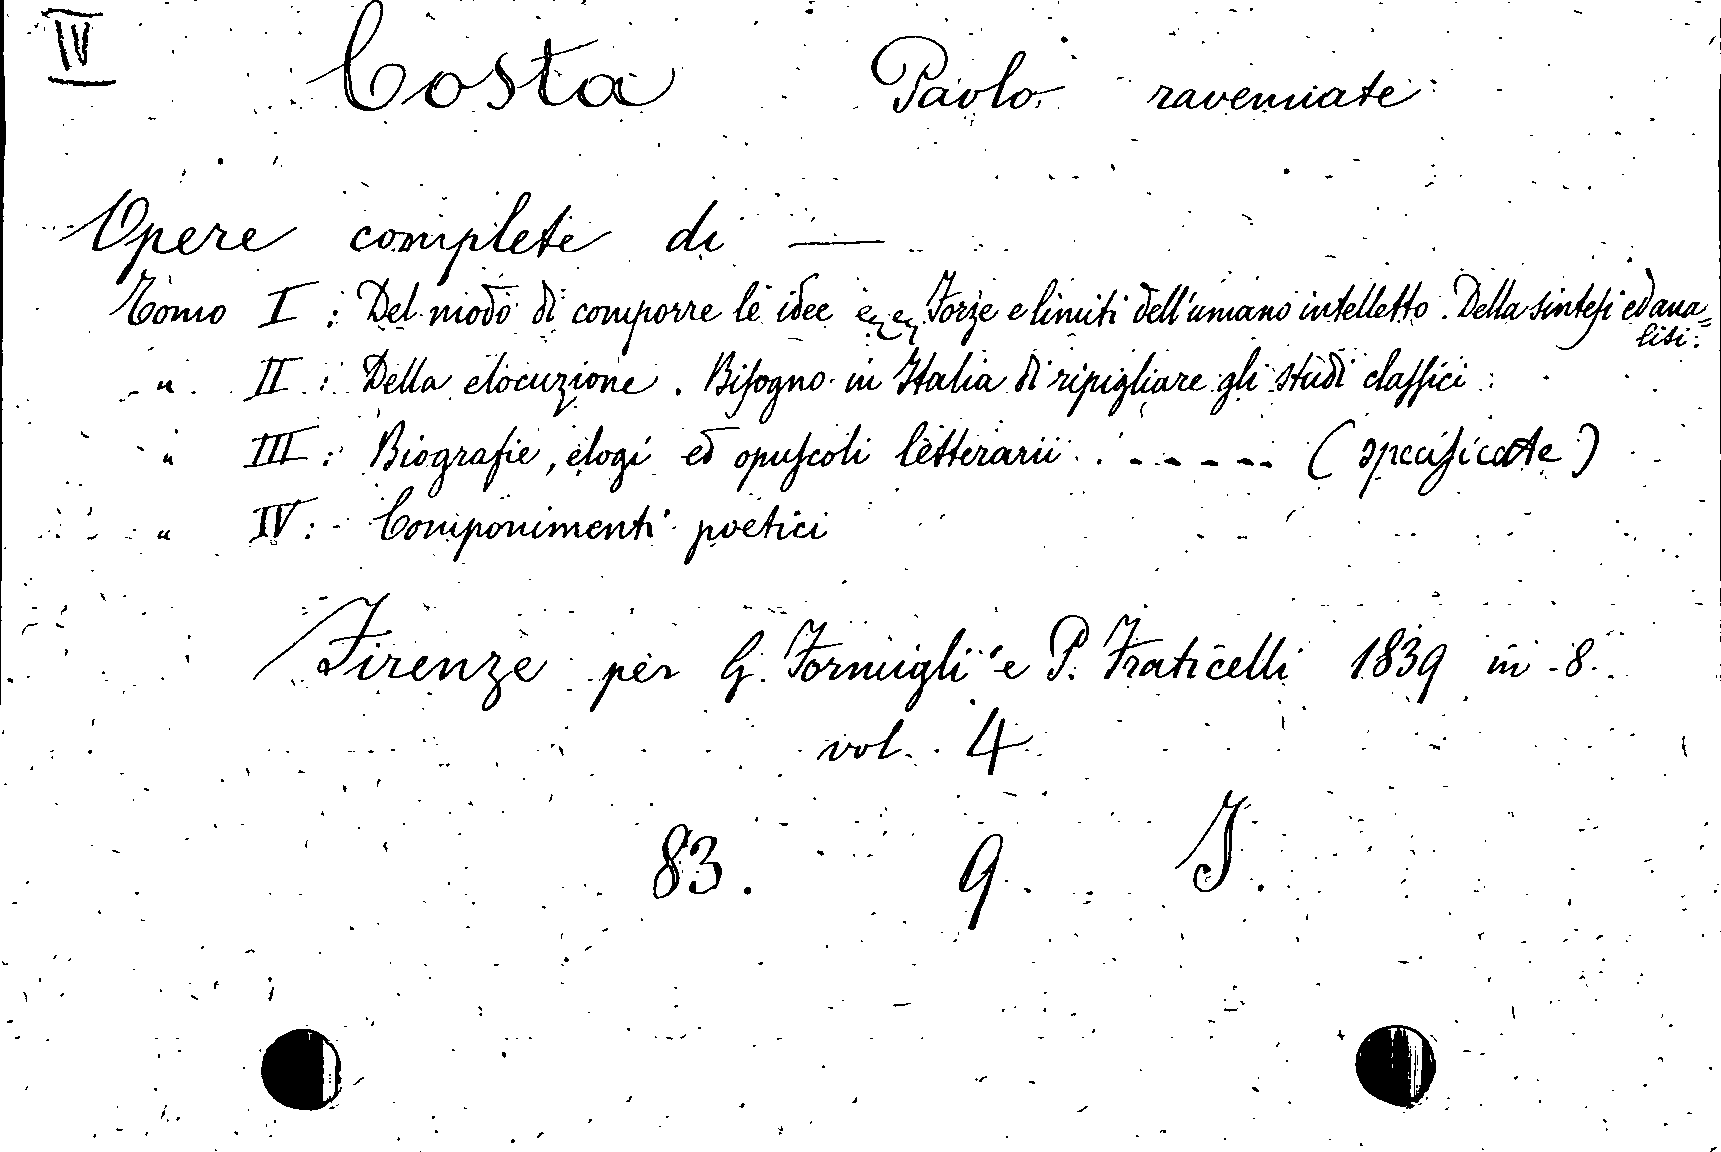 IV
Costa Paolo ravennate
Opere complete di —
Tomo I : Del modo di comporre le idee Forze e limiti dell'umano intelletto. Della sintesi ed ana=
lisi.
" II : Della elocuzione. Bisogno in Italia di ripigliare gli studi classici
" III : Biografie, elogi ed opuscoli letterarii . - - - - - (specificate)
" IV : Componimenti poetici
Firenze per G. Formigli e P. Fraticelli 1839 in 8.
vol. 4
83. 9. I.